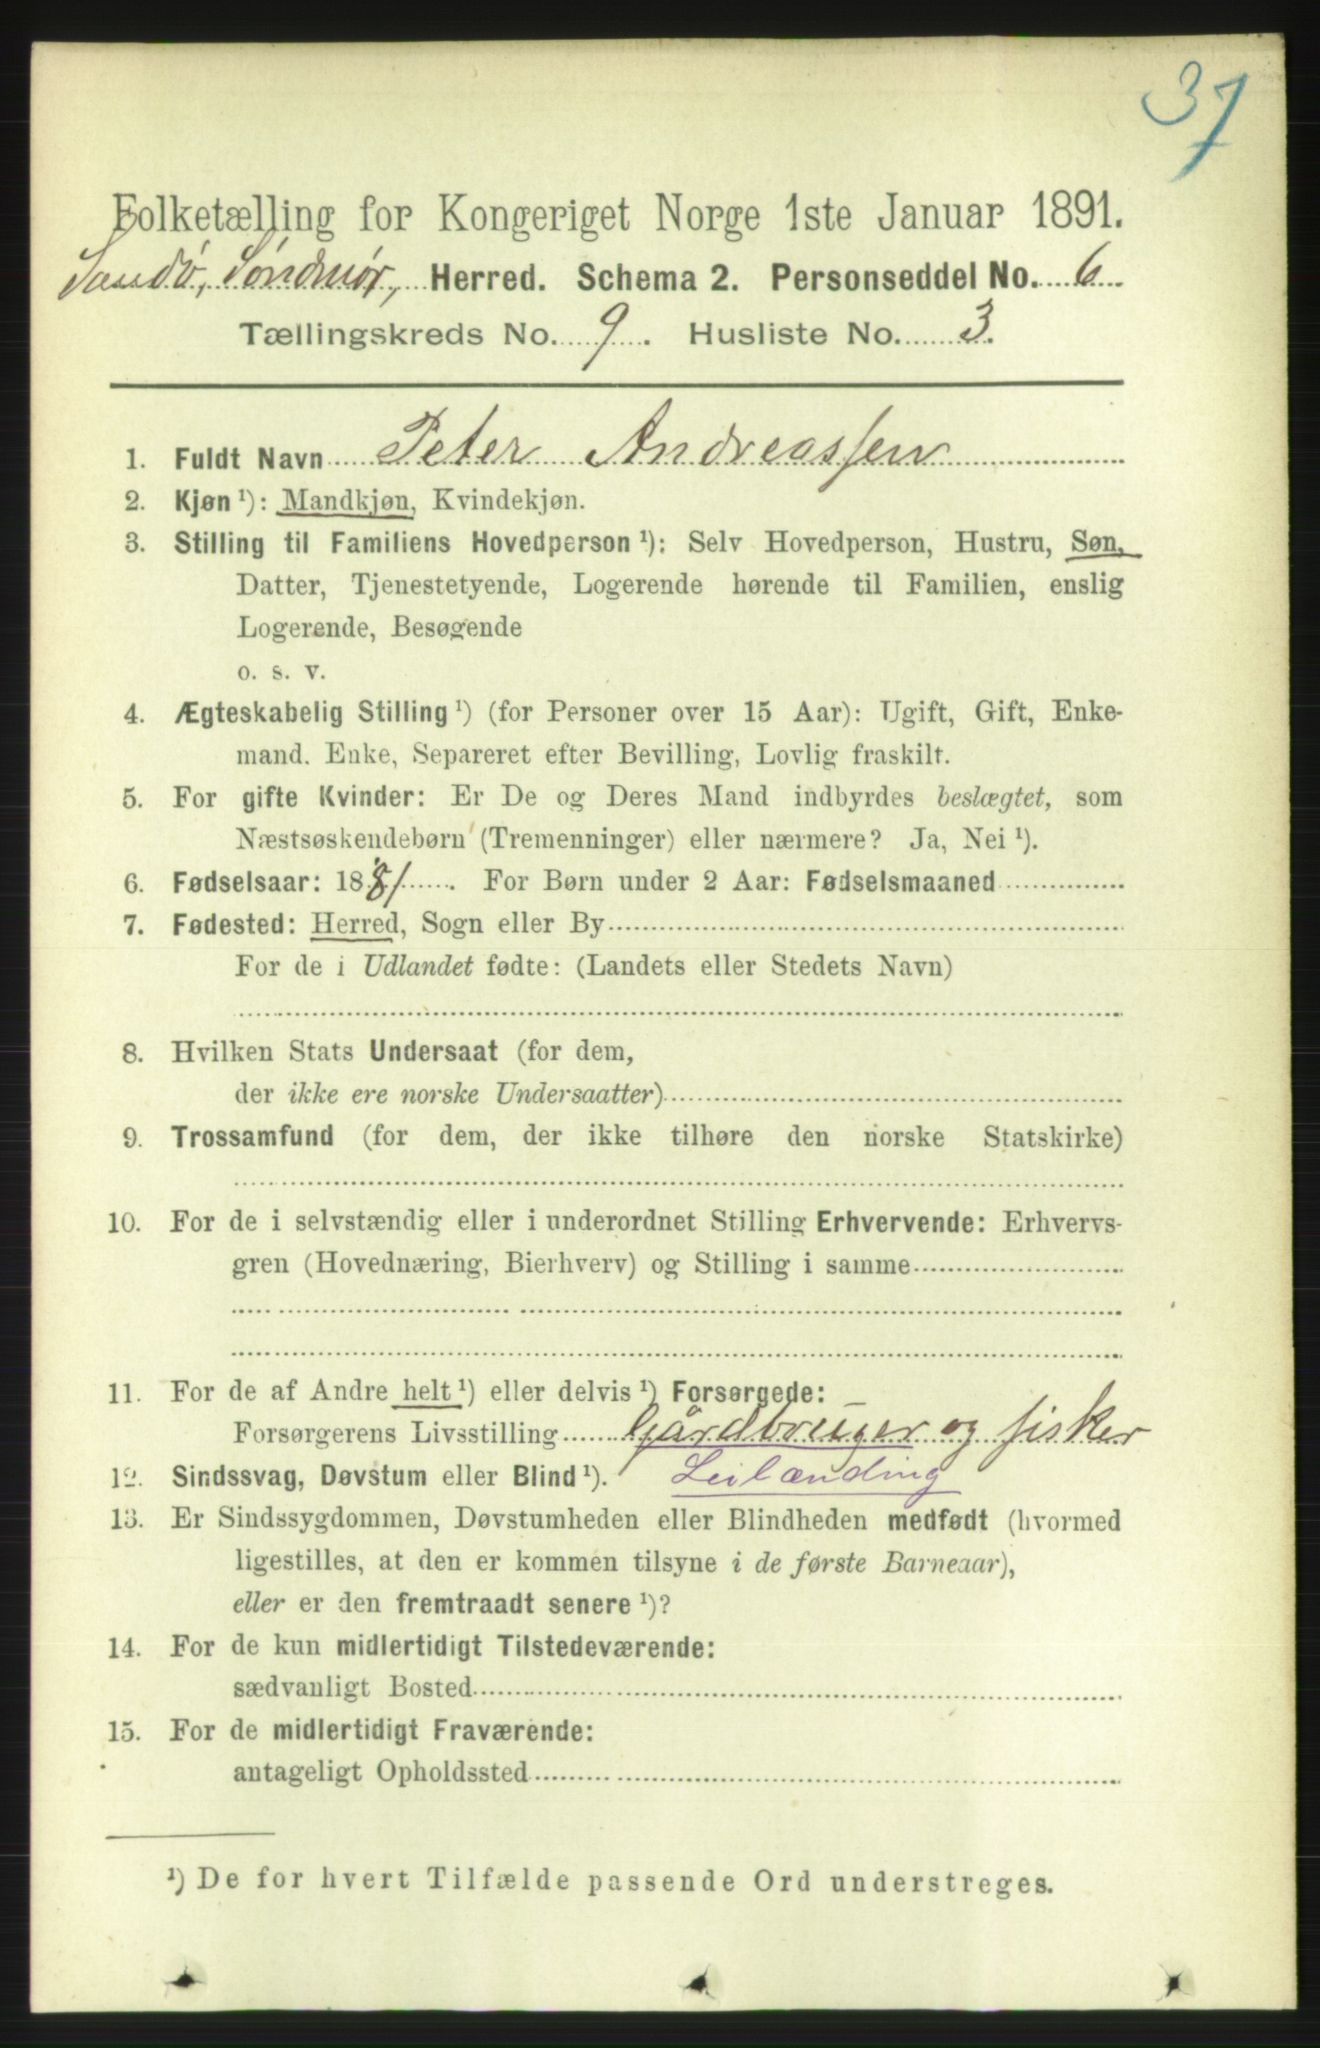 37
Folketælling for Kongeriget Norge 1ste Januar 1891.
Sandø, Søndmør, Herred. Schema 2. Personseddel No. 6
Tællingskreds No. 9. Husliste No. 3.
1. Fuldt Navn Peter Andreassen
2. Kjøn ¹): Mandkjøn, Kvindekjøn.
3. Stilling til Familiens Hovedperson ¹): Selv Hovedperson, Hustru, Søn,
Datter, Tjenestetyende, Logerende hørende til Familien, enslig
Logerende, Besøgende
o. s. v.
4. Ægteskabelig Stilling ¹) (for Personer over 15 Aar): Ugift, Gift, Enke-
mand. Enke, Separeret efter Bevilling, Lovlig fraskilt.
5. For gifte Kvinder: Er De og Deres Mand indbyrdes beslægtet, som
Næstsøskendebørn (Tremenninger) eller nærmere? Ja, Nei ¹).
6. Fødselsaar: 1881. For Børn under 2 Aar: Fødselsmaaned
7. Fødested: Herred, Sogn eller By
For de i Udlandet fødte: (Landets eller Stedets Navn)
8. Hvilken Stats Undersaat (for dem,
der ikke ere norske Undersaatter)
9. Trossamfund (for dem, der ikke tilhøre den norske Statskirke)
10. For de i selvstændig eller i underordnet Stilling Erhvervende: Erhvervs-
gren (Hovednæring, Bierhverv) og Stilling i samme
11. For de af Andre helt ¹) eller delvis ¹) Forsørgede:
Forsørgerens Livsstilling Gårdbruger og fisker
12. Sindssvag, Døvstum eller Blind ¹). Leilænding
13. Er Sindssygdommen, Døvstumheden eller Blindheden medfødt (hvormed
ligestilles, at den er kommen tilsyne i de første Barneaar),
eller er den fremtraadt senere ¹)?
14. For de kun midlertidigt Tilstedeværende:
sædvanligt Bosted
15. For de midlertidigt Fraværende:
antageligt Opholdssted
¹) De for hvert Tilfælde passende Ord understreges.